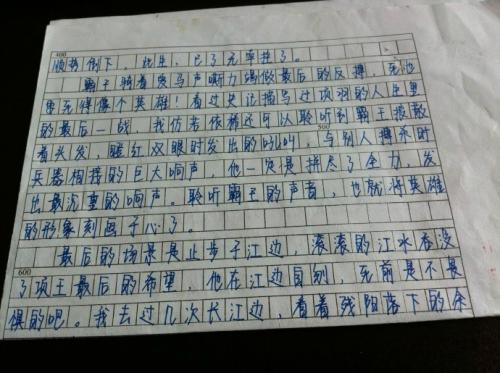 400
顺势倒下。此生,已了无牵挂了。
霸王骑着战马声嘶力竭做最后的反搏,死也
要死得像个英雄!看过史记描写过项羽的人生里
的最后一战,我仿若依稀还可以聆听到霸王披散
500
着头发,瞳红双眼时发出的吼叫,与别人搏杀时
兵器相接的巨大响声。他一定是拼尽了全力,发
出最沉重的响声。聆听霸王的声音,也就将英雄
的形象刻画于心了。
最后的场景是止步于江边,滚滚的江水吞没
600
了项王最后的希望,他在江边自刎,死前是不是
恨的吧。我去过几次长江边,看着残阳落下的余